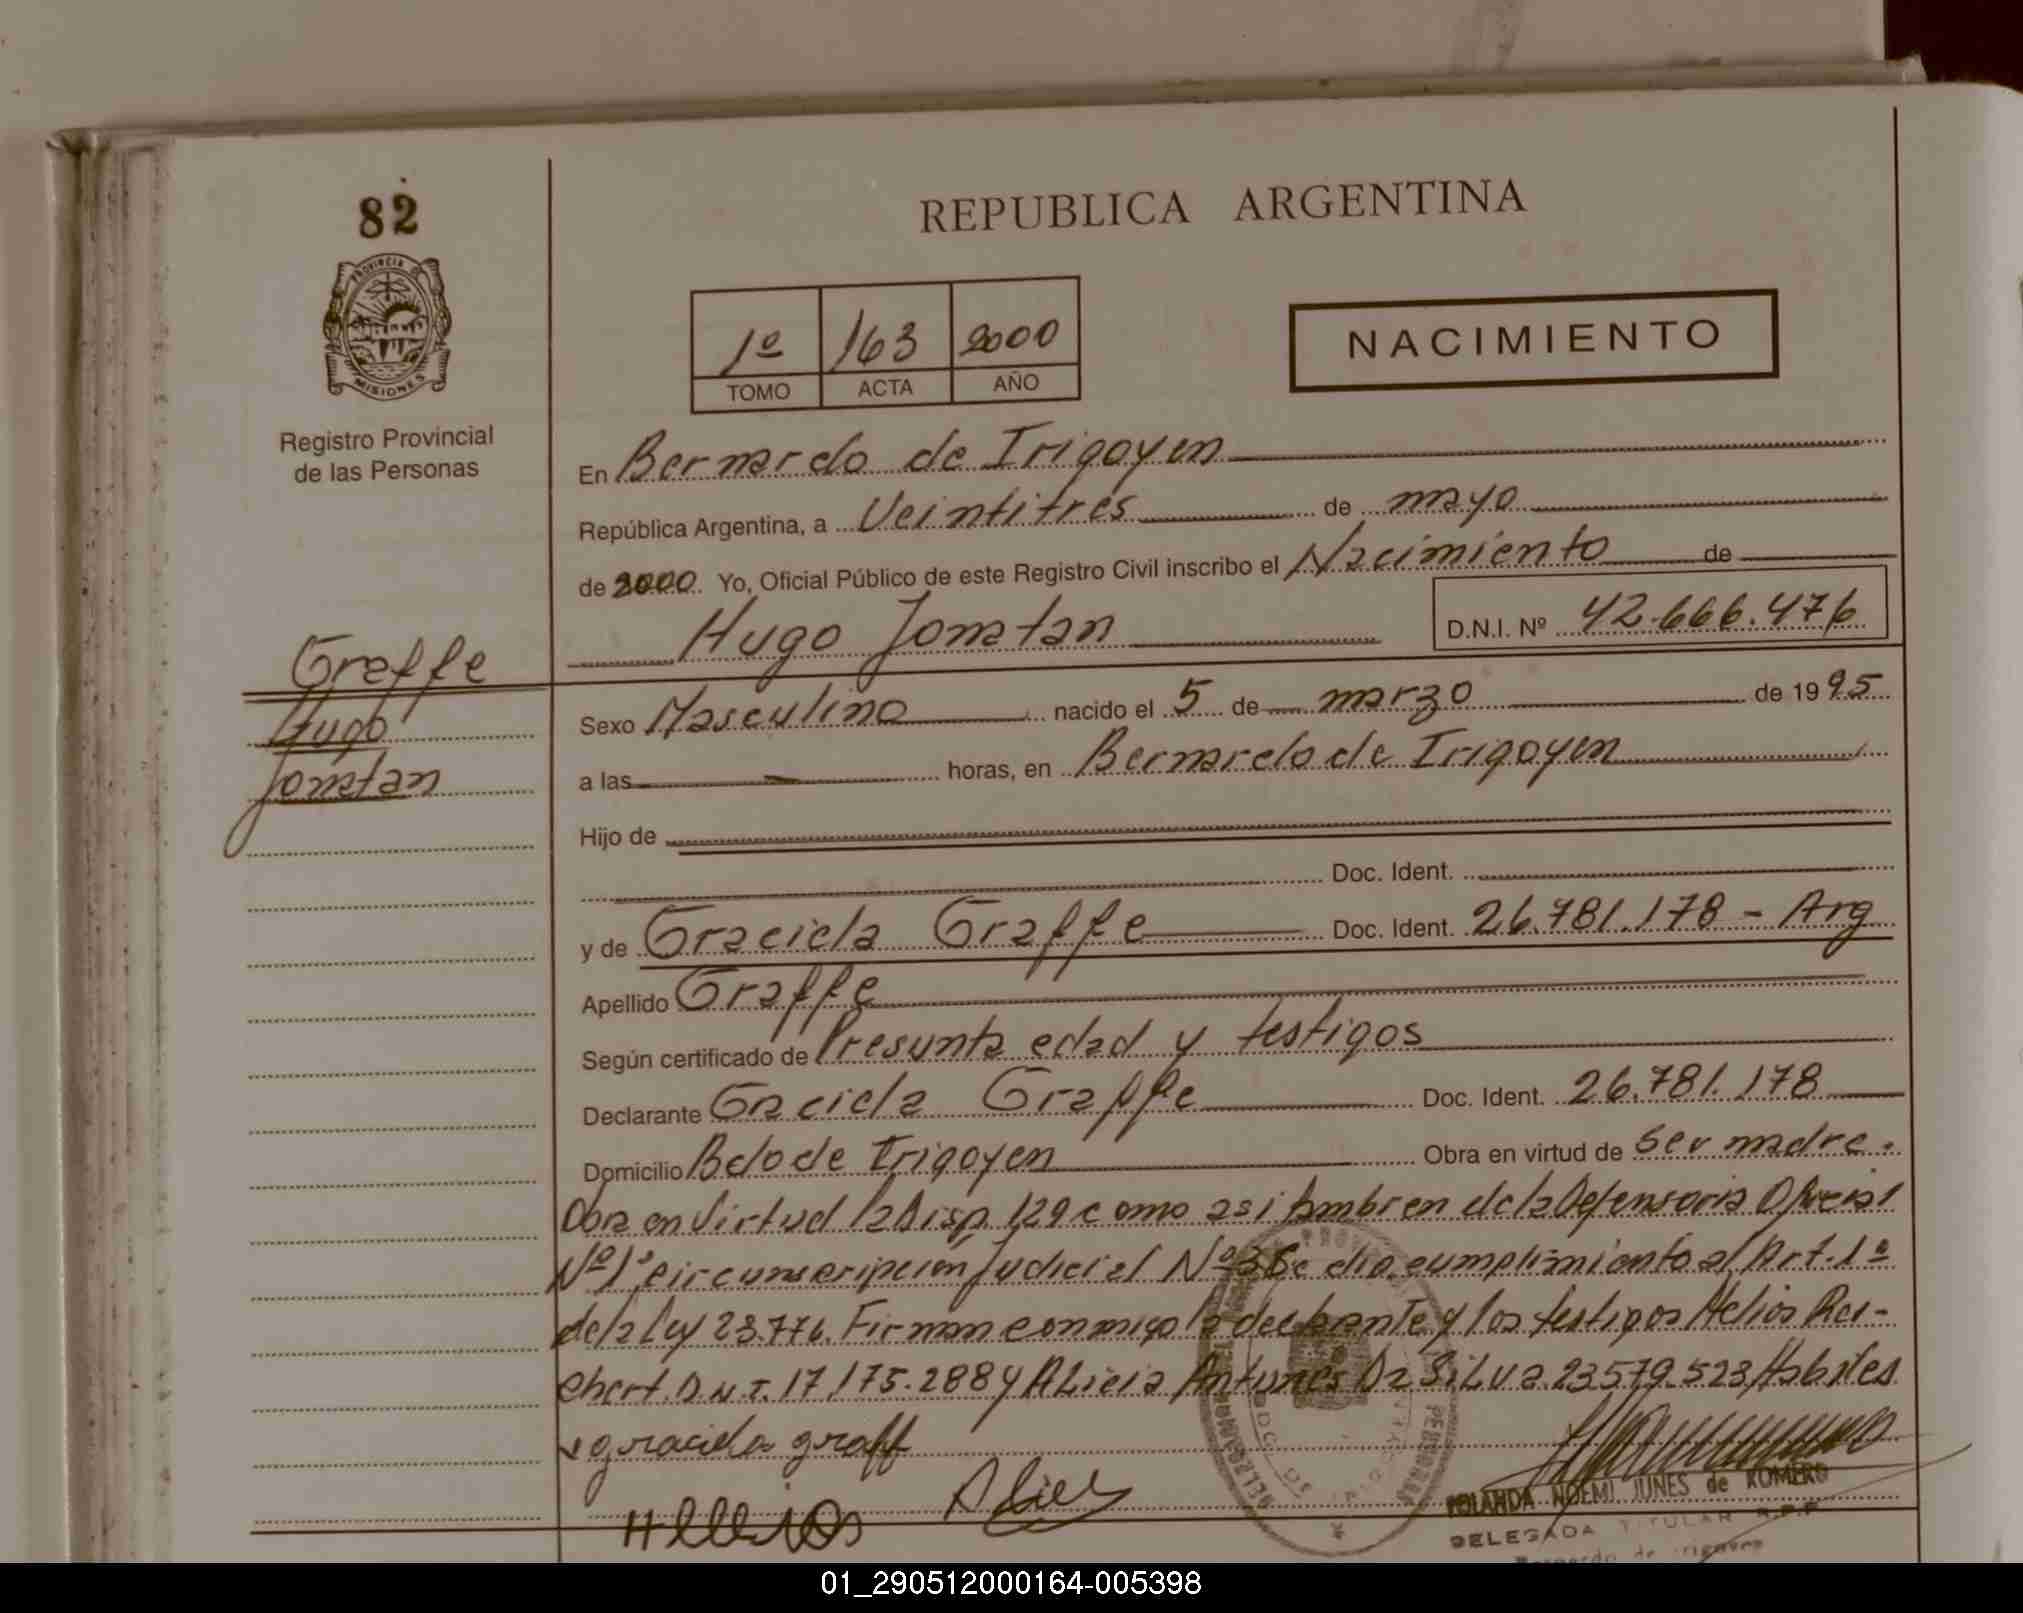 82
PROVINCIA DE
MISIONES
Registro Provincial
de las Personas
Greffe
Hugo
Jonatan
REPUBLICA ARGENTINA
1º 163 2000
TOMO ACTA AÑO
NACIMIENTO
En Bernardo de Irigoyen
República Argentina, a Veintitres de mayo
de 2000 Yo, Oficial Público de este Registro Civil inscribo el Nacimiento de
Hugo Jonatan D.N.I. Nº 42.666.476
Sexo Masculino nacido el 5 de marzo de 1995
a las horas, en Bernardo de Irigoyen
Hijo de
Doc. Ident.
y de Graciela Graffe Doc. Ident. 26.781.178 - Arg
Apellido Graffe
Según certificado de Presunta edad y testigos
Declarante Graciela Graffe Doc. Ident. 26.781.178
Domicilio Bdo de Irigoyen Obra en virtud de ser madre.
Obra en Virtud la Disp. 129 como asi tambien de la Defensoria Oficial
Nº 1º circunscripcion Judicial Nº Se dio cumplimiento al Art. 1º
de la Ley 23.776. Firman conmigo la declarante y los testigos Helios Rei-
chert D.N.I. 17.175.288 y Alicia Antunes Da Silva 23579.523 Habiles
graciela graff
Hellios Alici
YOLANDA NOEMI JUNES de ROMERO
DELEGADA TITULAR R.P.P
Bernardo de Irigoyen
01_290512000164-005398